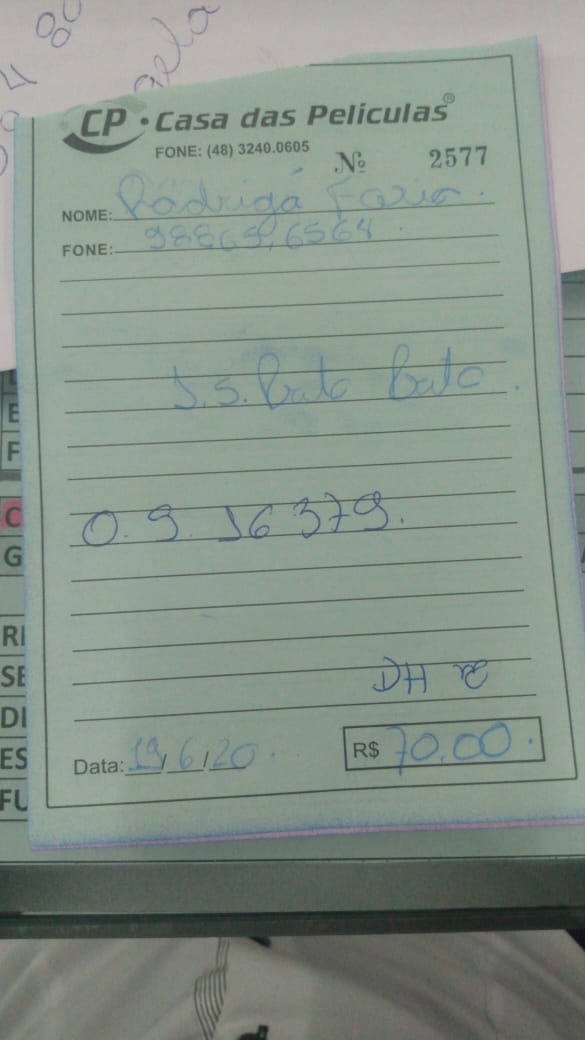 CP • Casa das Películas®
FONE: (48) 3240.0605
Nº 2577
NOME: Rodrigo Faria.
FONE: 98865,6564.
J.S. Bate Bate.
O.S. 16379.
DH
Data: 19/6/20.
R$ 70,00.
E
F
C
G
RE
SE
DI
ES
FU